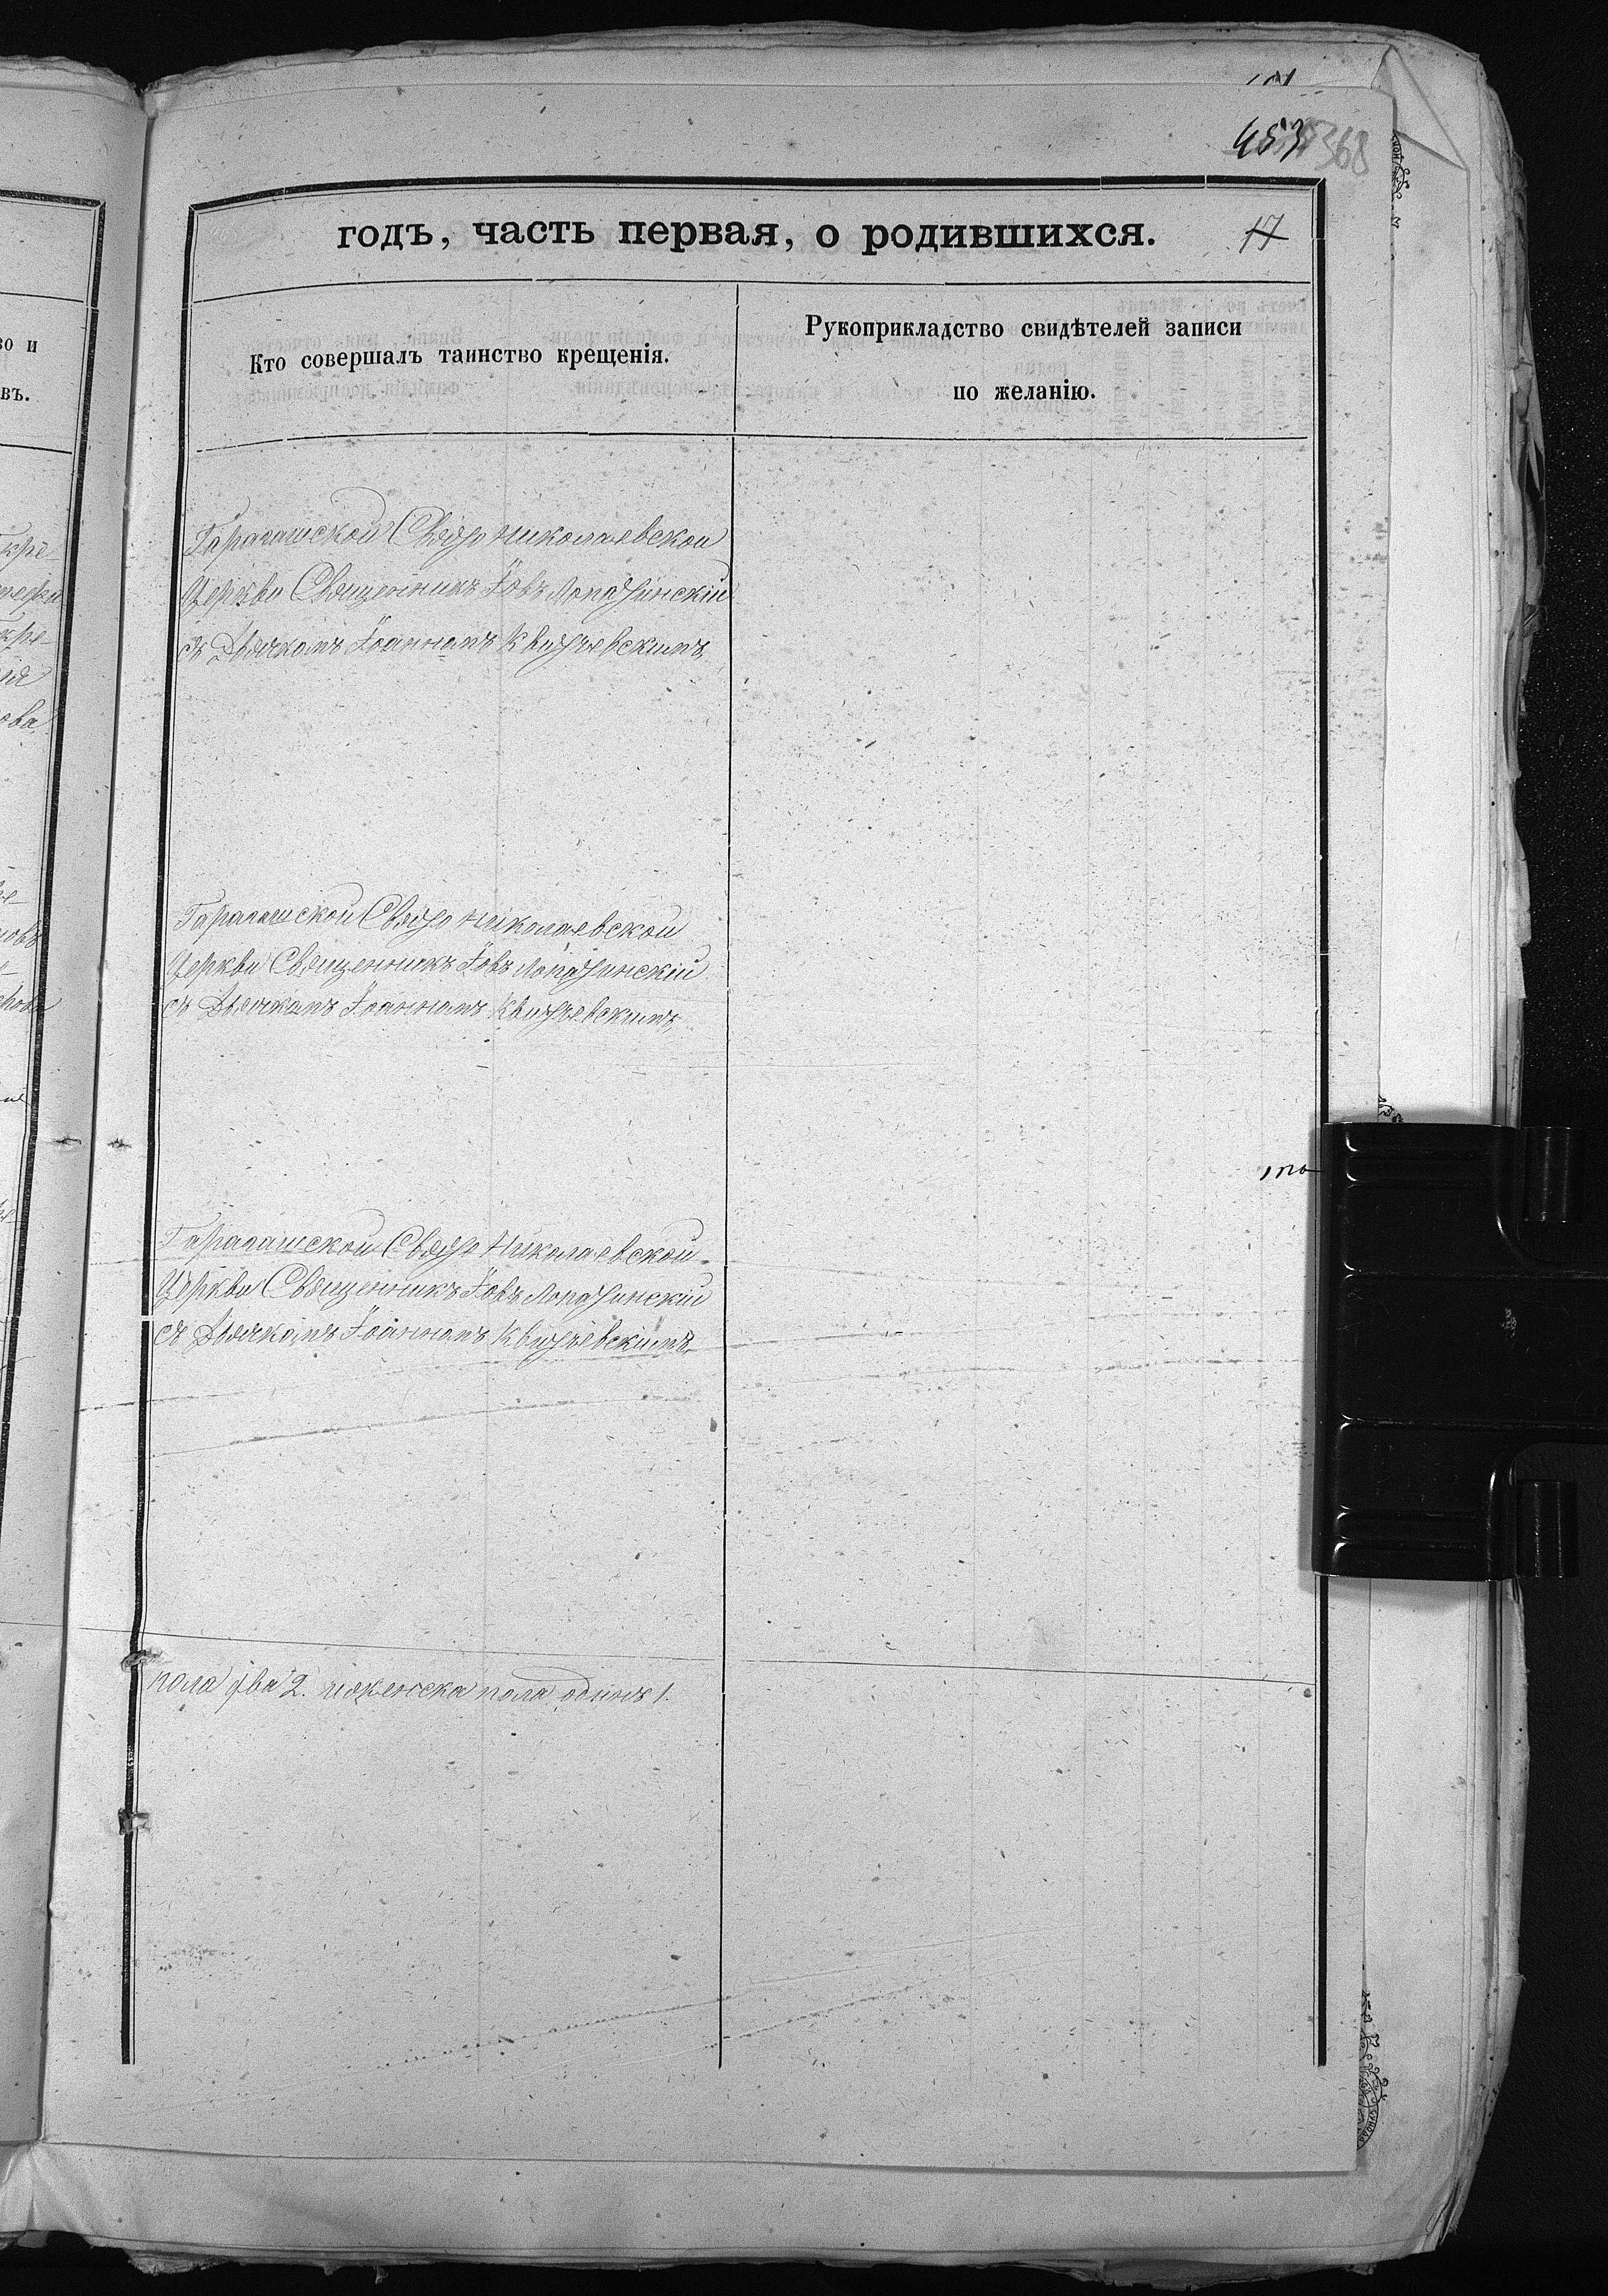 453
368
годъ, часть первая, о родившихся.
17
Кто совершалъ таинство крещенія.
Рукоприкладство свидѣтелей записи
по желанію.
Свято Николаевской
Церкви Священникъ Іовъ Лопатинскій
съ Дьячкомъ Іоанномъ Квитчевскимъ
Свято Николаевской
Церкви Священникъ Іовъ Лопатинскій
съ Дьячкомъ Іоанномъ Квитчевскимъ
Свято Николаевской
Церкви Священникъ Іовъ Лопатинскій
съ Дьячкомъ Іоанномъ Квитчевскимъ
пола два 2. и женска пола одинъ 1.